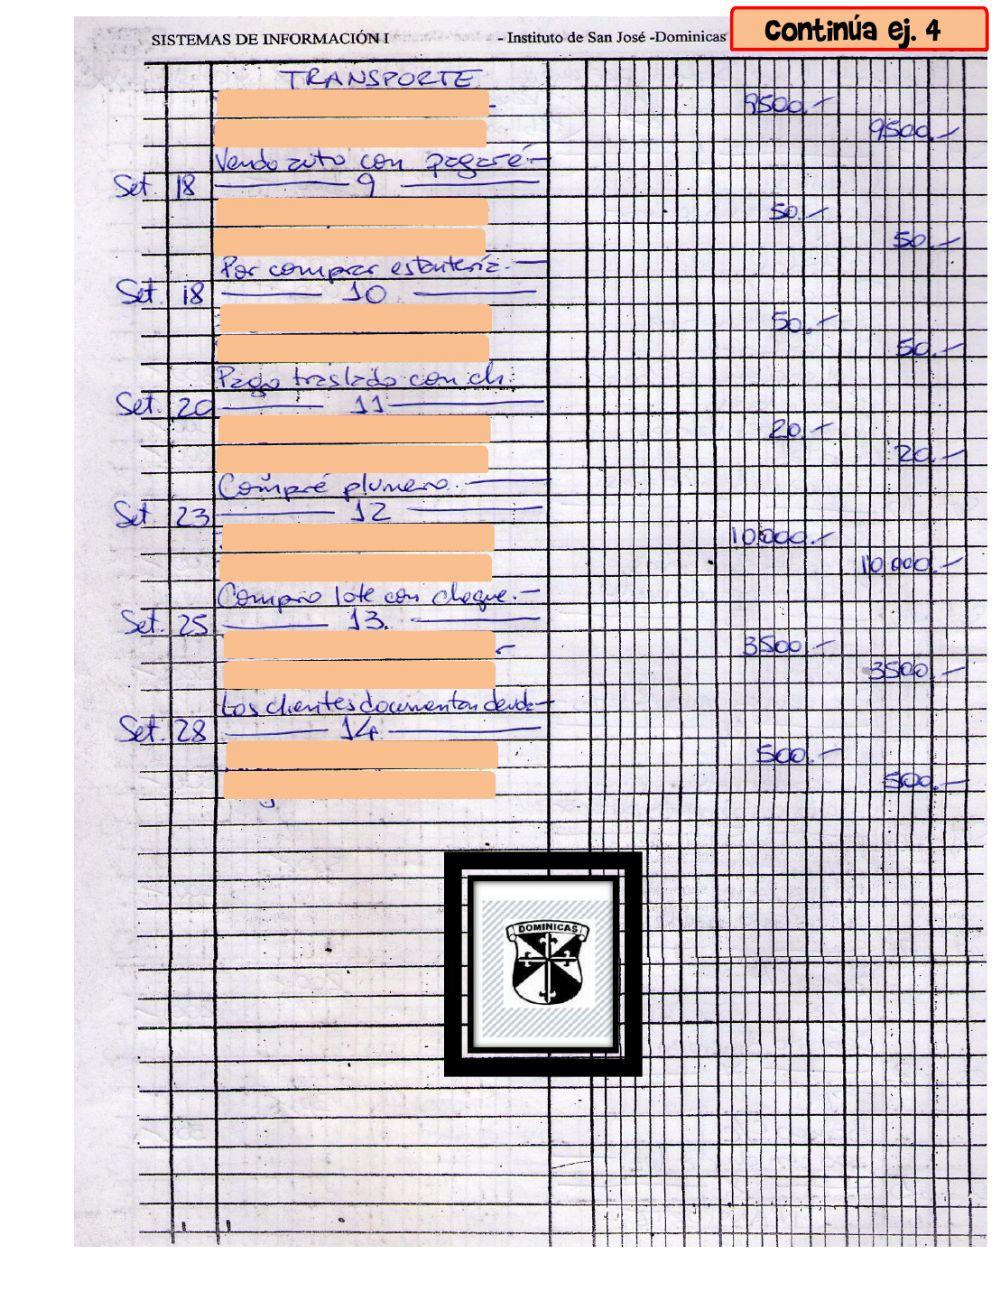 Continúa ej. 4
SISTEMAS DE INFORMACIÓN I - Instituto de San José -Dominicas
TRANSPORTE
9500.-
9500.-
Vendo auto con pagaré-
Set 18 9
50.-
50.-
Por comprar estantería.-
Set. 18 10
50.-
50.-
Pago traslado con ch.
Set. 20 11
20.-
20.-
Compré plumero.-
Set 23 12
10.000.-
10.000.-
Compro lote con cheque.-
Set. 25 13.
3500.-
3500.-
Los clientes documentan deuda-
Set. 28 14.
500.-
500.-
DOMINICAS